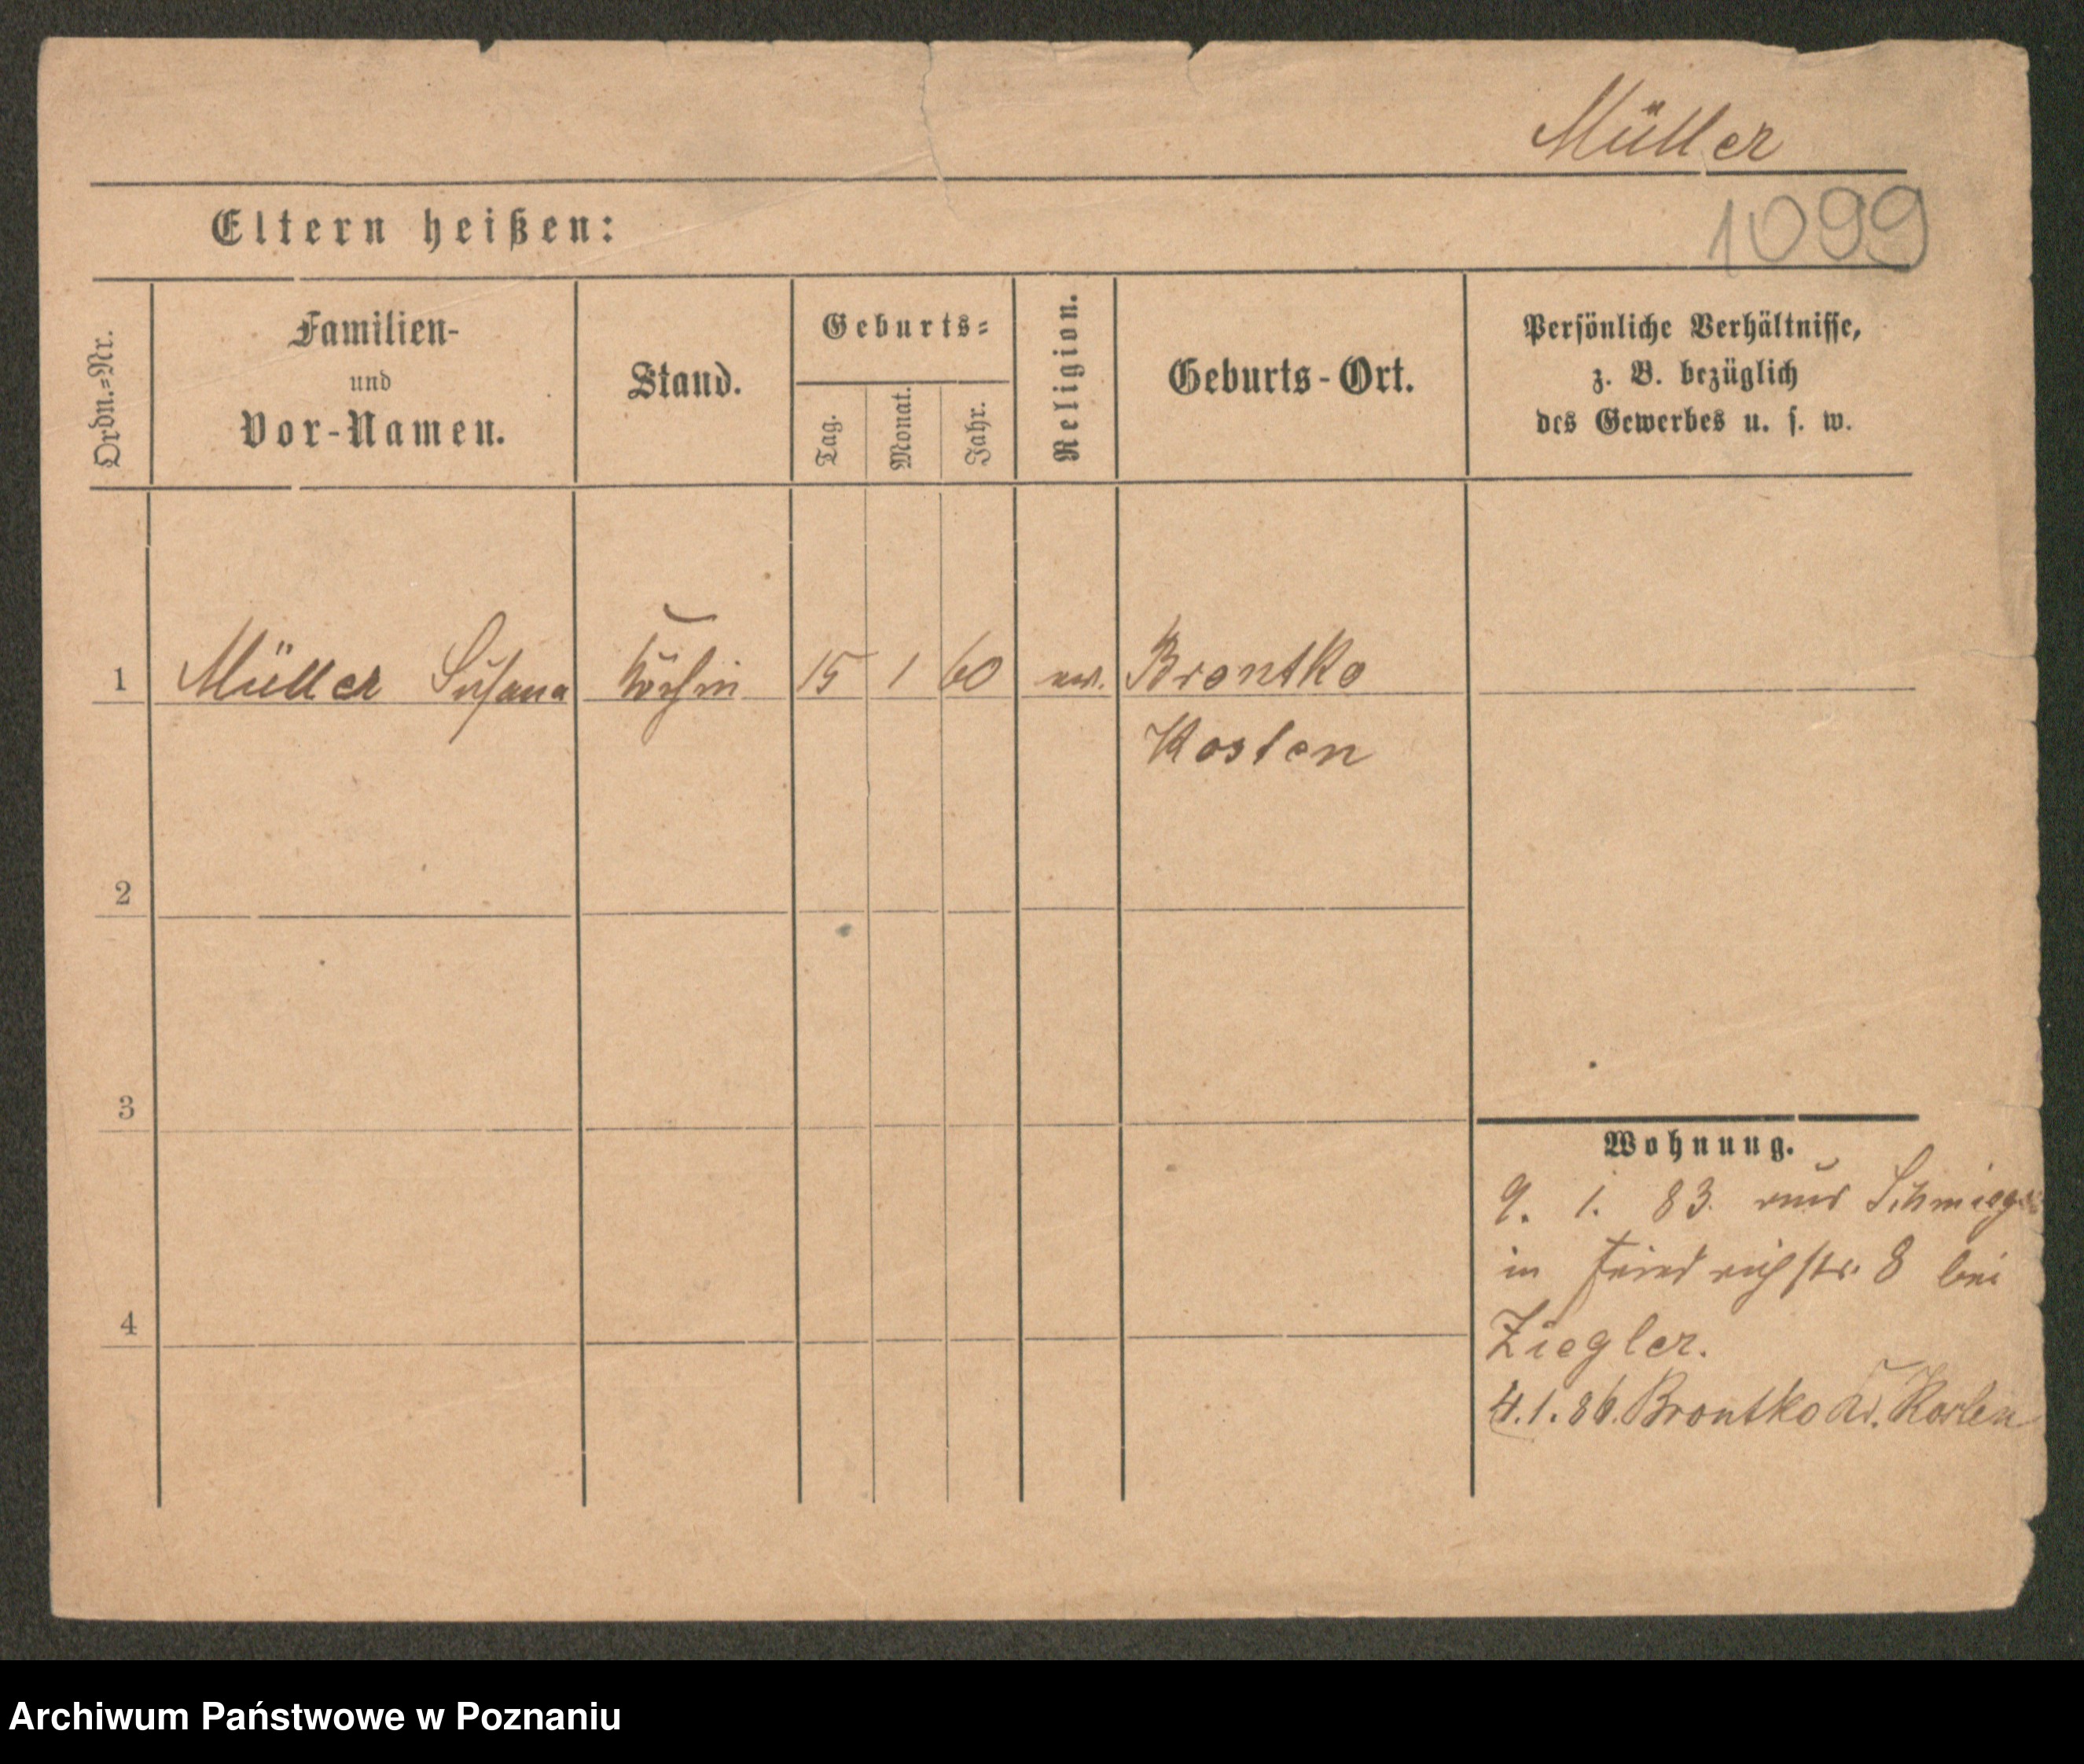 Müller
1099
Eltern heißen:
Ordn.=Nr.
Familien-
und
Vor-Namen.
Stand.
Geburts=
Tag.
Monat.
Jahr.
Religion.
Geburts-Ort.
Persönliche Verhältnisse,
z. B. bezüglich
des Gewerbes u. s. w.
1 Müller Susana Köchin 15 1 60 Brontko
Kosten
2
3
4
Wohnung.
9. 1. 83. aus
in Friedrichstr. 8 bei
Ziegler.
4.1.86. Brontko Kr. Kosten
Archiwum Państwowe w Poznaniu